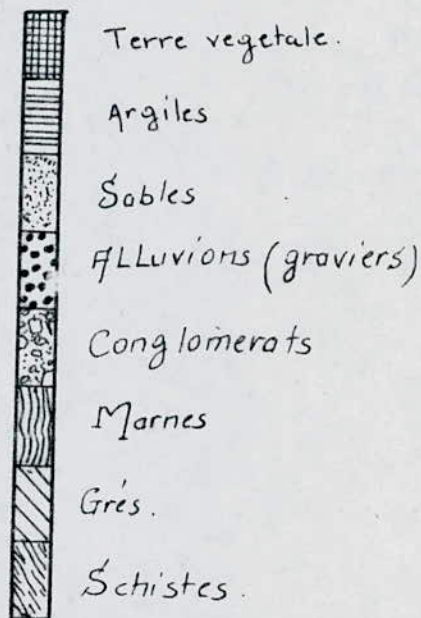 Terre vegetale.
Argiles
Sables
ALLuvions (graviers)
Conglomerats
Marnes
Grés.
Schistes.